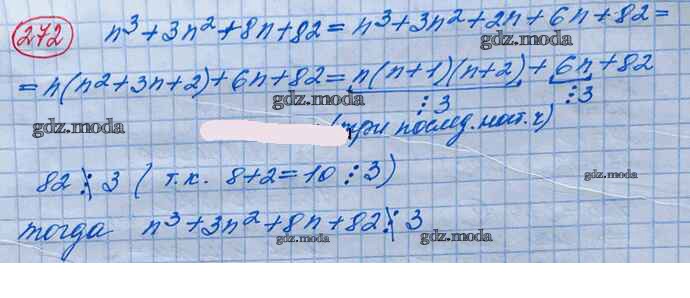 272 n³+3n²+8n+82 = n³+3n²+2n+6n+82 =
= n(n²+3n+2)+6n+82 = n(n+1)(n+2) + 6n+82
gdz.moda gdz.moda
⋮3 ⋮3
gdz.moda gdz.moda
(три послед. нат. ч)
82 ⋮̸ 3 ( т.к. 8+2=10 ⋮ 3)
gdz.moda gdz.moda
тогда n³+3n²+8n+82 ⋮̸ 3
gdz.moda gdz.moda